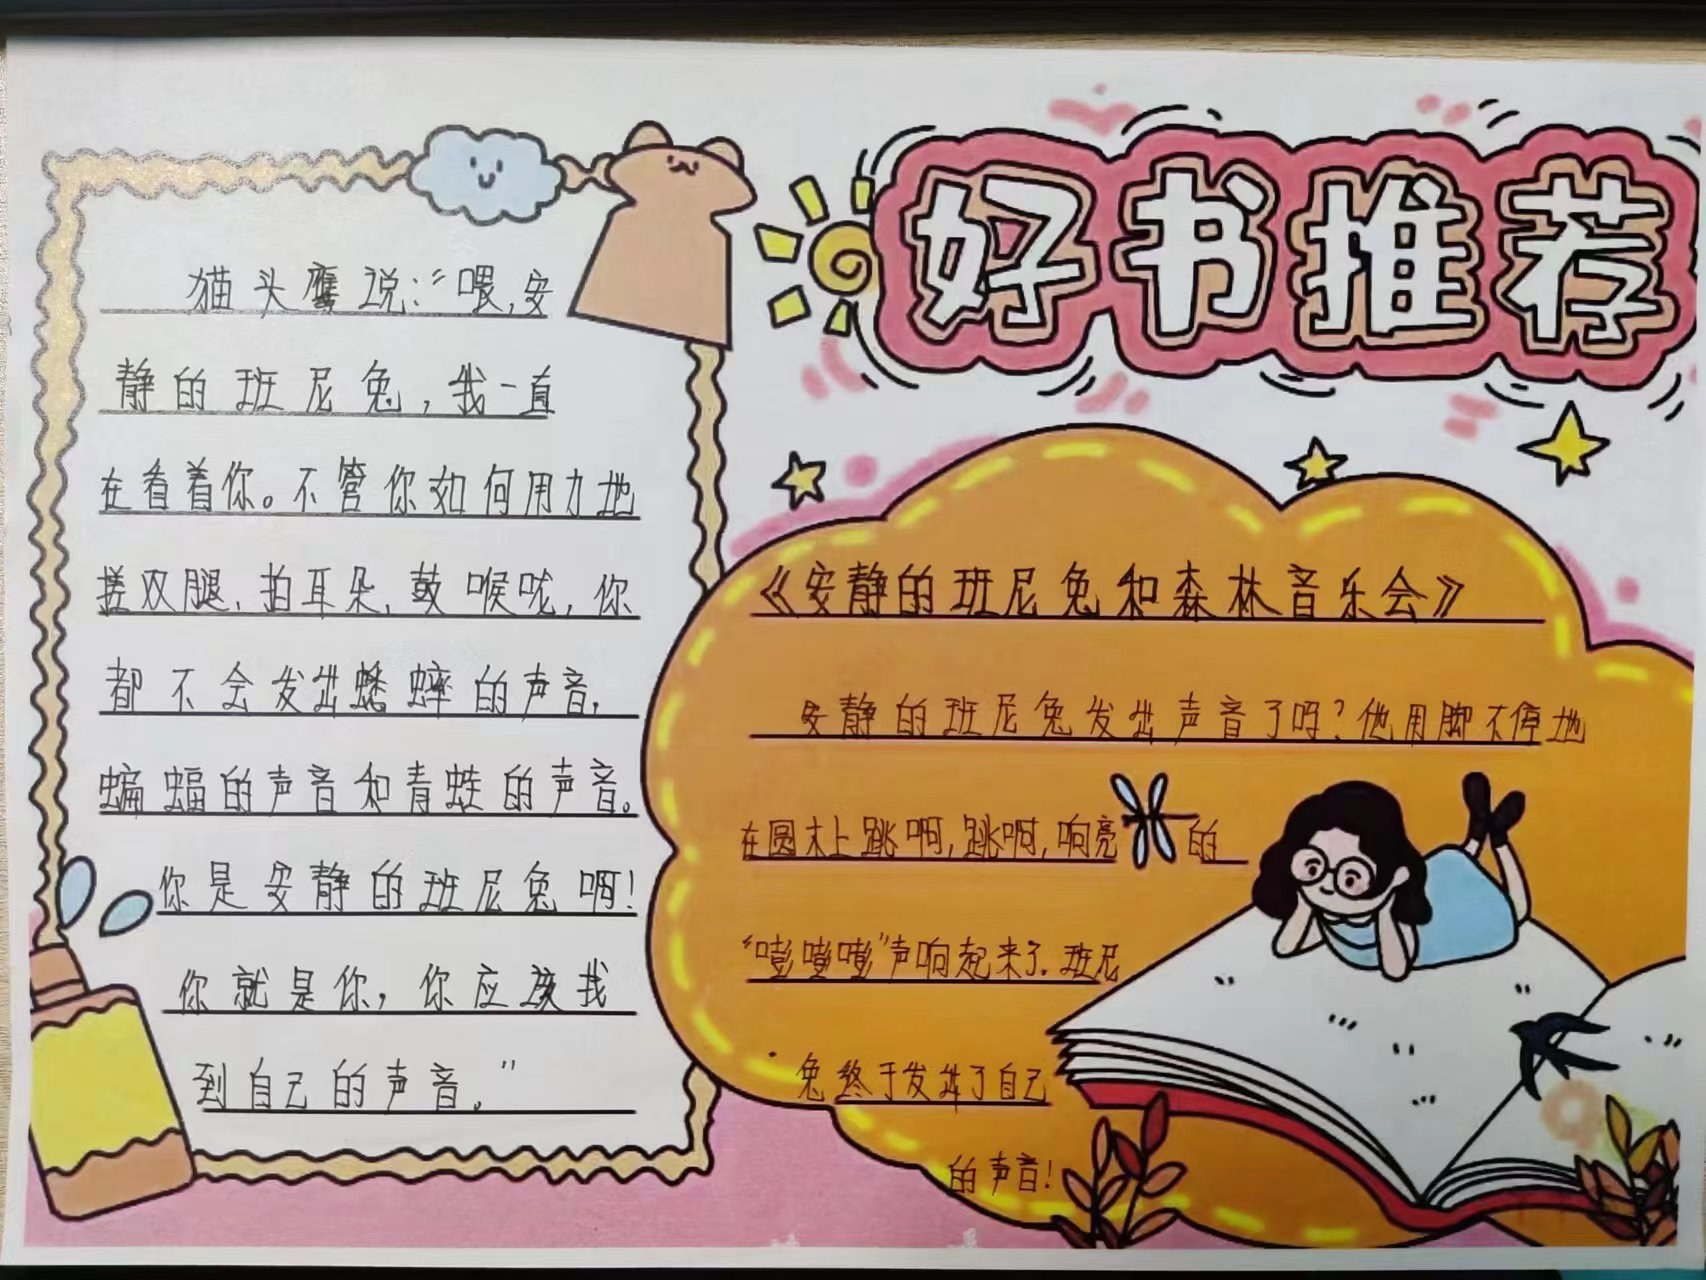 好书推荐
猫头鹰说：“喂，安
静的班尼兔，我一直
在看着你。不管你如何用力地
搓双腿，拍耳朵，鼓喉咙，你
都不会发出蟋蟀的声音，
蝙蝠的声音和青蛙的声音。
你是安静的班尼兔啊！
你就是你，你应该找
到自己的声音。”
《安静的班尼兔和森林音乐会》
安静的班尼兔发出声音了吗？他用脚不停地
在圆木上跳啊，跳啊，响亮的
“嘭嘭嘭”声响起来了。班尼
兔终于发出了自己
的声音！